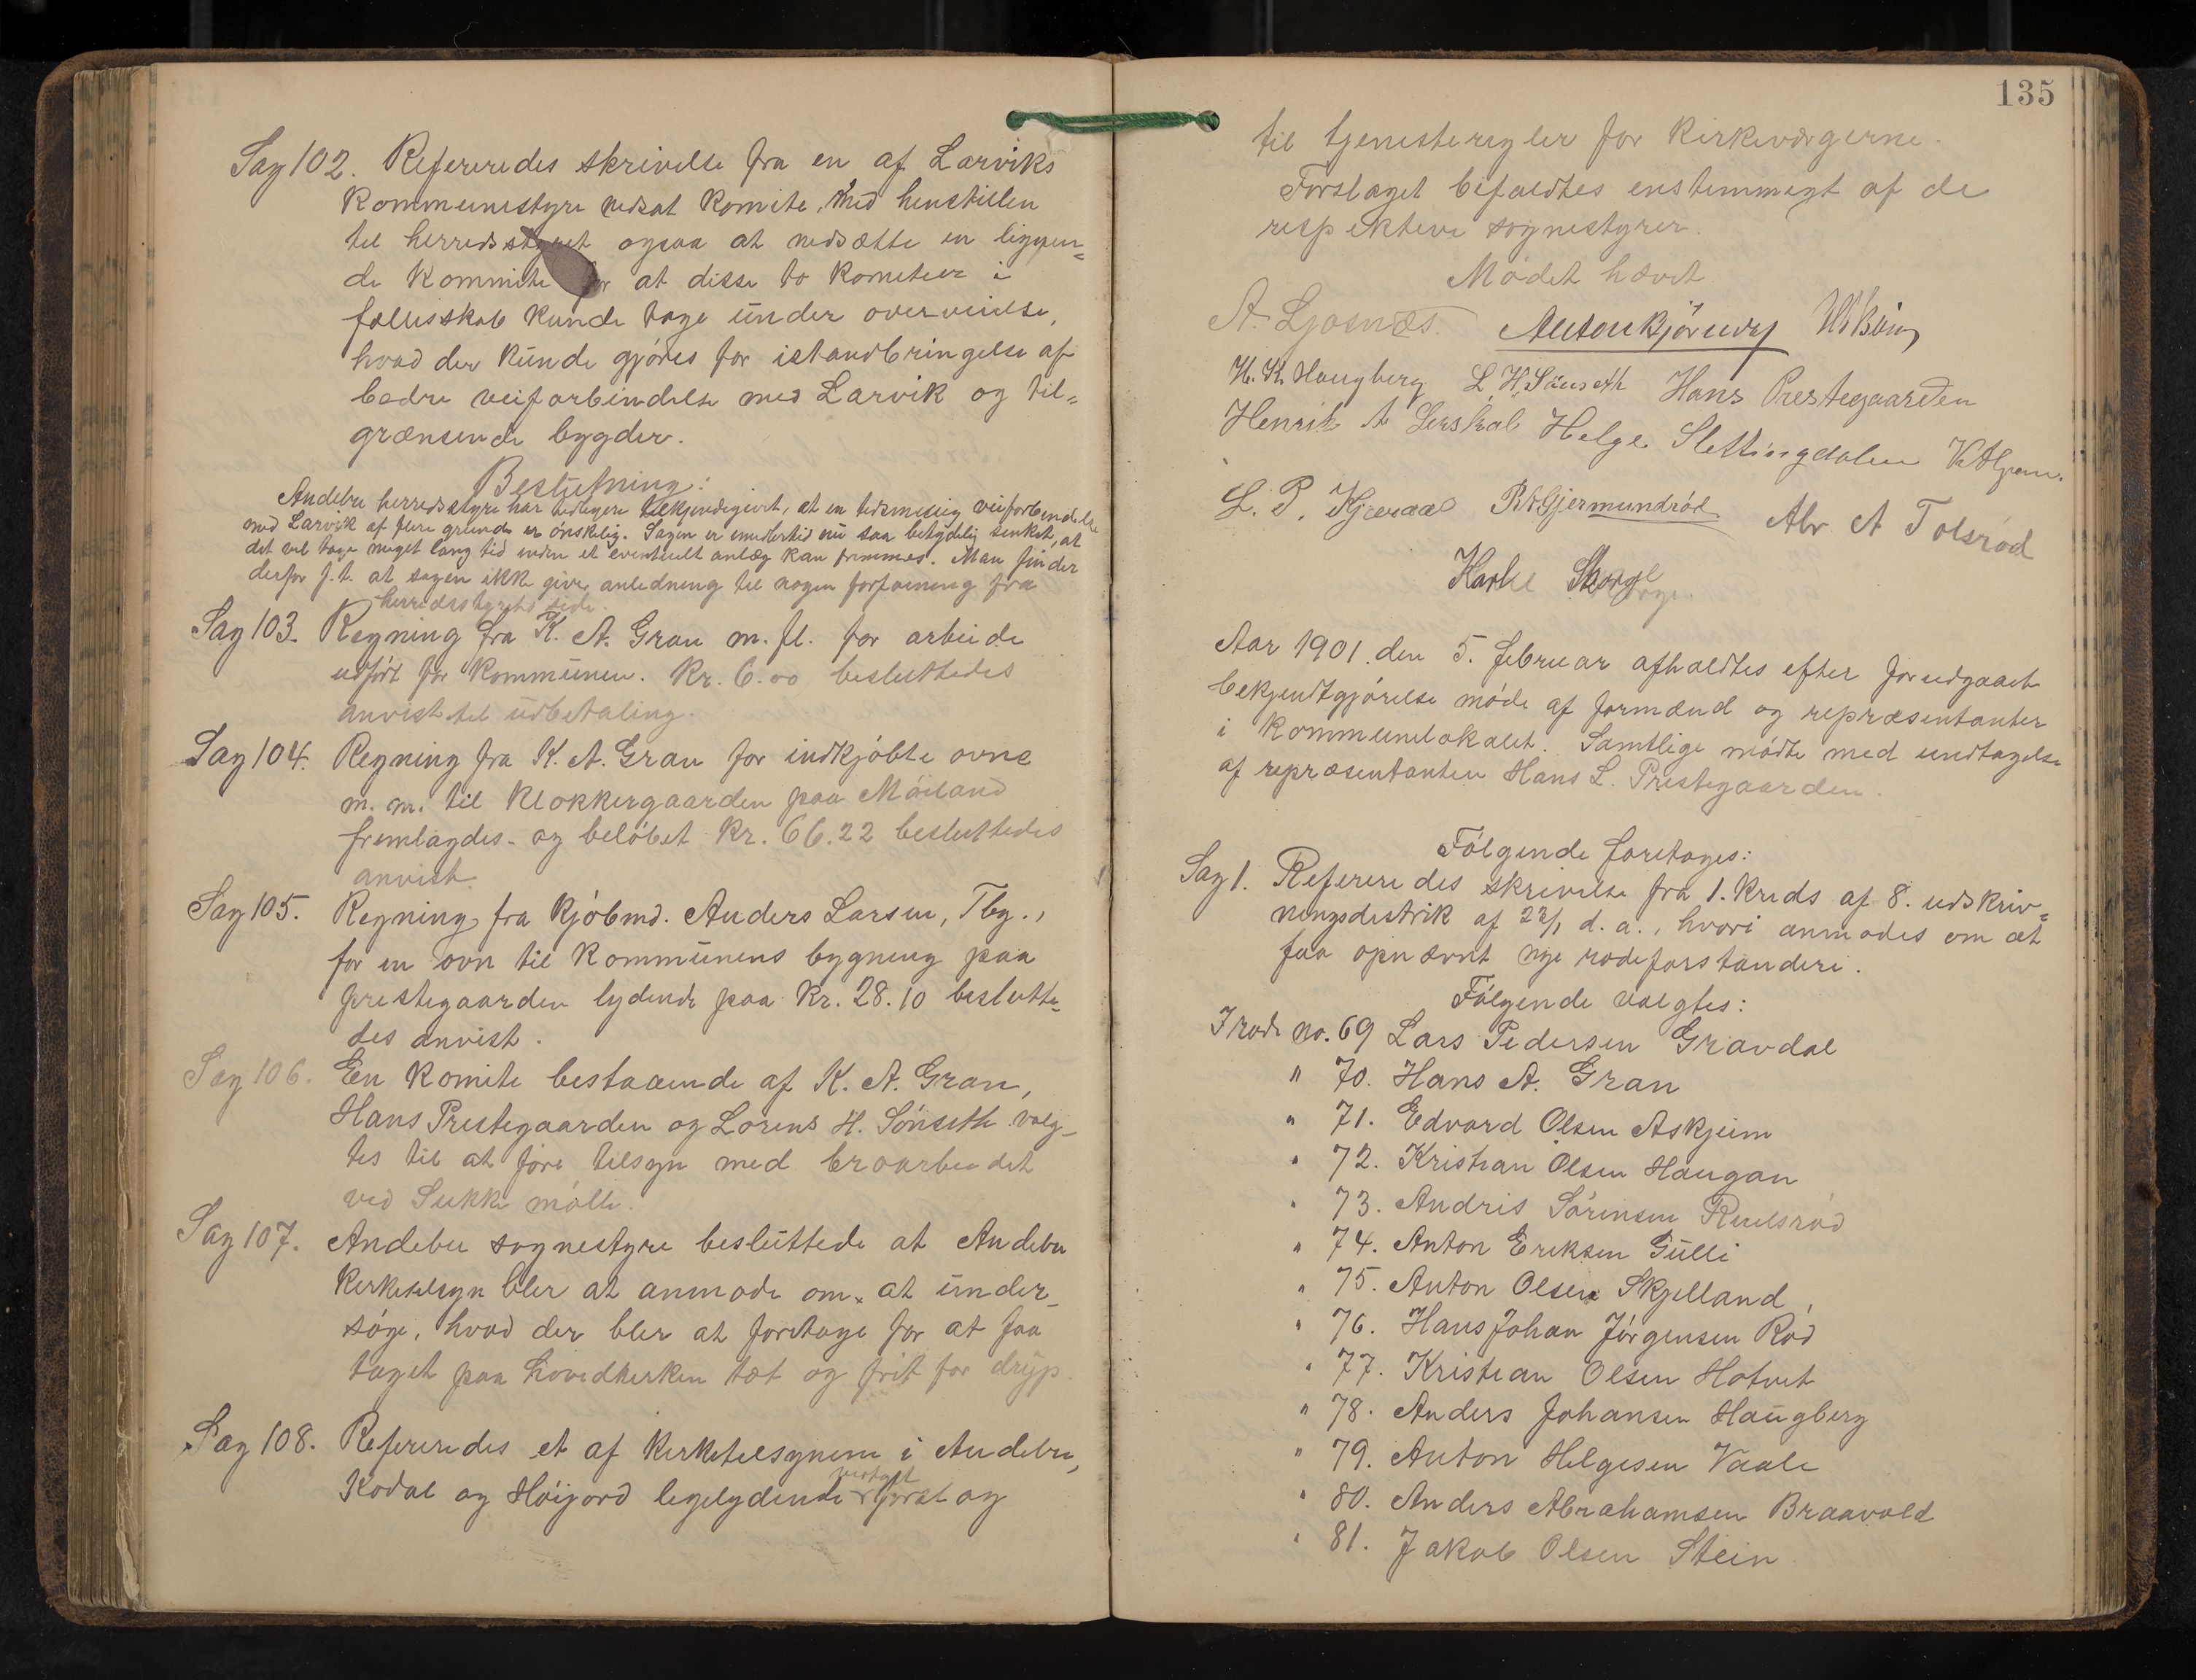 Sag 102. Refereredes skrivelse fra en af Larviks
kommunestyre nedsat komite, med henstillen
til herredsstyret ogsaa at nedsætte en liggen=
de kommite for at disse to komiteer i
fællesskab kunde tage under overveielse,
hvad der kunde gjøres for istandbringelse af
bedre veiforbindelse med Larvik og til=
grænsende bygder.
Beslutning:
Andebu herredsstyre har tidligere tilkjendegivet, at en tidsmessig veiforbindelse
med Larvik af flere grunde er ønskelig. Sagen er imidlertid nu saa betydelig senket, at
det vil tage meget lang tid inden et eventuelt anlæg kan fremmes. Man finder
derfor f. t. at sagen ikke giver anledning til nogen forføining fra
herredsstyrets side.
Sag 103. Regning fra K. A. Gran m. fl. for arbeide
udført for kommunen. Kr. 6.00 besluttedes
anvist til udbetaling.
Sag 104. Regning fra K. A. Gran for indkjøbte ovne
m. m. til Klokkergaarden paa Møiland
fremlagdes - og beløbet kr. 66.22 besluttedes
anvist.
Sag 105. Regning fra kjøbmd. Anders Larsen, Tbg.,
for en ovn til kommunens bygning paa
prestegaarden lydende paa kr. 28.10 beslutte-
des anvist.
Sag 106. En komite bestaaende af K. A. Gran,
Hans Prestegaarden og Lorens H. Sønseth valg-
tes til at føre tilsyn med broarbeidet
ved Sukke mølle.
Sag 107. Andebu sognestyre besluttede at Andebu
kirketilsyn blir at anmode om, at under-
søge, hvad der blir at foretage for at faa
taget paa hovedkirken tæt og frit for dryp.
Sag 108. Refereredes et af kirketilsynene i Andebu,
vedtaget
Kodal og Høijord ligelydende forslag
135
til tjenesteregler for kirkeværgerne.
Forslaget bifaldtes enstemmigt af de
respektive sognestyrer.
Mødet hævet
A. Ljosnæs. Anton Kjørnæs
H. K. Haugberg L. H. Sønseth Hans Prestegaarden
Henrik A Helge Slettingdalen
L. P. Hjæraas R. A. Gjermundrød Abr. A Tolsrød
Skorge
Aar 1901 den 5. februar afholdtes efter forudgaaet
bekjendtgjørelse møde af formænd og repræsentanter
i kommunelokalet. Samtlige mødte med undtagelse
af repræsentanten Hans L. Prestegaarden.
Følgende foretoges:
Sag 1. Refereredes skrivelse fra 1. kreds af 8. udskriv=
ningsdistrik af 22/1 d. a., hvori anmodes om at
faa opnævnt nye rodeforstandere.
Følgende valgtes:
I rode no. 69 Lars Pedersen Gravdal
" 70. Hans A. Gran
" 71. Edvard Olsen Askjeim
" 72. Kristian Olsen Haugan
" 73. Andris Sørensen Ruelsrød
" 74. Anton Eriksen Gulli
" 75. Anton Olsen Skjelland
" 76. Hans Johan Jørgensen Rød
" 77. Kristian Olsen Hotvet
" 78. Anders Johansen Haugberg
" 79. Anton Helgesen Vaale
" 80. Anders Abrahamsen Braavold
" 81. Jakob Olsen Stein